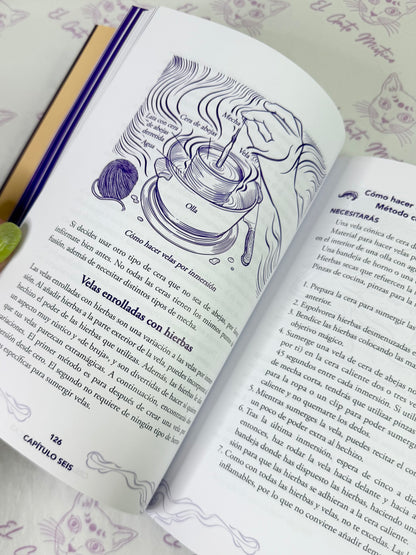 El Gato Místico
Mecha
Cera de abejas
Lata con cera
de abejas
derretida
Agua
Vela
Olla
Cómo hacer velas por inmersión
Si decides usar otro tipo de cera que no sea de abejas,
infórmate bien antes. No todas las ceras tienen el mismo punto
fusión, además de necesitar distintos tipos de mecha.
Velas enrolladas con hierbas
Las velas enrolladas con hierbas son una variación a las velas por
Al añadir hierbas a la parte exterior de la vela, puedes
hechizo el poder de las hierbas que utilizas. Además, las hierbas
un aspecto muy rústico y «de brujo», y son divertidas de hacer si
que tus velas parezcan extramágicas. A continuación, encontrarás
El primer método es para después de crear una vela por
desde cero. El segundo no requiere de ningún tipo de
específicas para sumergir velas.
126
CAPÍTULO SEIS
Cómo hacer
Método
NECESITARÁS
Una vela cónica de cera
Material para hacer velas
en el interior de una olla con
Una bandeja de horno o una
Hierbas secas que refuercen la
Pinzas de cocina, pinzas para la
1. Prepara la cera para sumergir
anterior.
2. Espolvorea hierbas desmenuzadas
3. Bendice las hierbas colocando las
objetivo mágico.
4. Sumerge una vela de cera de abejas
por ti) en la cera caliente
segundos entre cada inmersión. Si
de mecha corta, tendrás que utilizar pinzas
para la ropa o un clip para poder sumergir
caliente y no quemarte los dedos.
5. Mientras sumerges la vela, puedes recitar el
un poco de poder extra al hechizo.
6. Tras la última inmersión, espera de cinco a
entonces, haz rodar la vela hacia delante y hacia
bandeja donde has dispuesto las hierbas, haciendo
sión para que las hierbas se adhieran a la cera caliente.
7. Como con todas las hierbas y velas, no te excedas. Las
inflamables, por lo que no conviene añadir
El Gato Místico